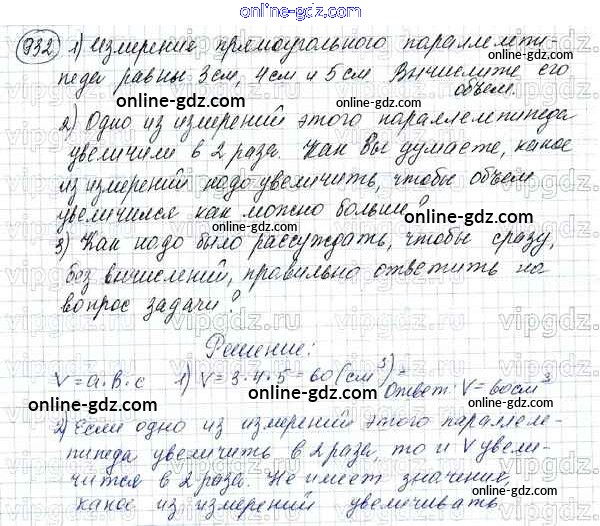 online-gdz.com
932 1) Измерения прямоугольного параллелепи-
педа равны 3см, 4см и 5см Вычислите его
объем.
online-gdz.com online-gdz.com
2) Одно из измерений этого параллелепипеда
увеличили в 2 раза. Как Вы думаете, какое
из измерений надо увеличить, чтобы объем
увеличился как можно больше?
online-gdz.com online-gdz.com
3) Как надо было рассуждать, чтобы сразу,
без вычислений, правильно ответить на
вопрос задачи?
online-gdz.com online-gdz.com
vipgdz.ru vipgdz.ru
Решение:
V=a·b·c 1) V=3·4·5=60(см³)
Ответ: V=60см³
online-gdz.com online-gdz.com
2) Если одно из измерений этого параллеле-
пипеда увеличить в 2 раза, то и V увели-
чится в 2 раза. Не имеет значение,
какое из измерений увеличивать.
online-gdz.com online-gdz.com